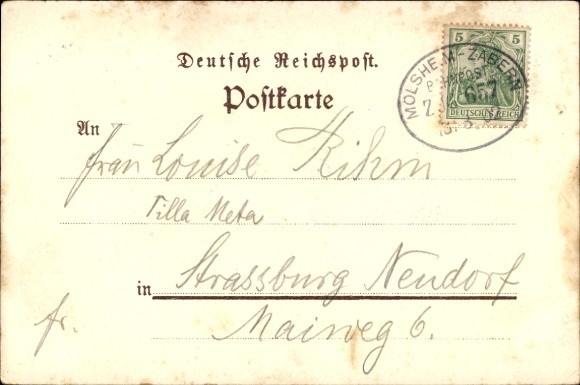 Deutsche Reichspost.
Postkarte
5 5
MOLSHEIM-ZABERN
BAHNPOST
657
DEUTSCHES REICH
An
Frau Louise Rihm
Villa Meta
in Strassburg Neudorf
fr. Maiweg 6.